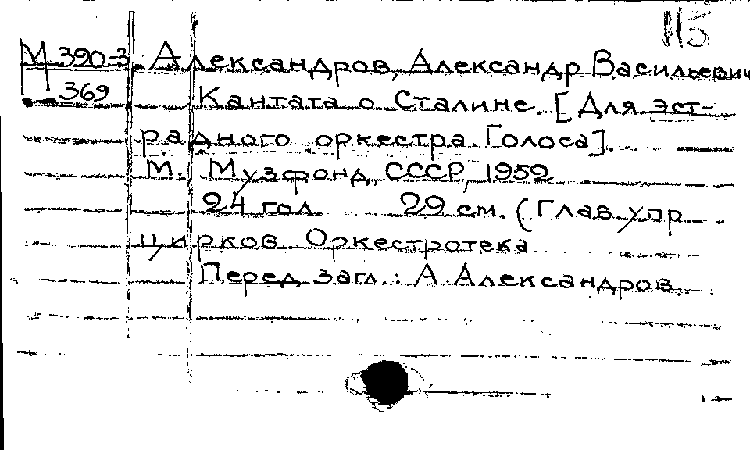 М 390-3 Александров, Александр Васильевич
369 Кантата о Сталине. [Для эст-
радного оркестра. Голоса].
М. Музфонд СССР, 1952
24 гол. 29 см. (Глав. упр.
цирков. Оркестротека
Перед загл.: А. Александров.